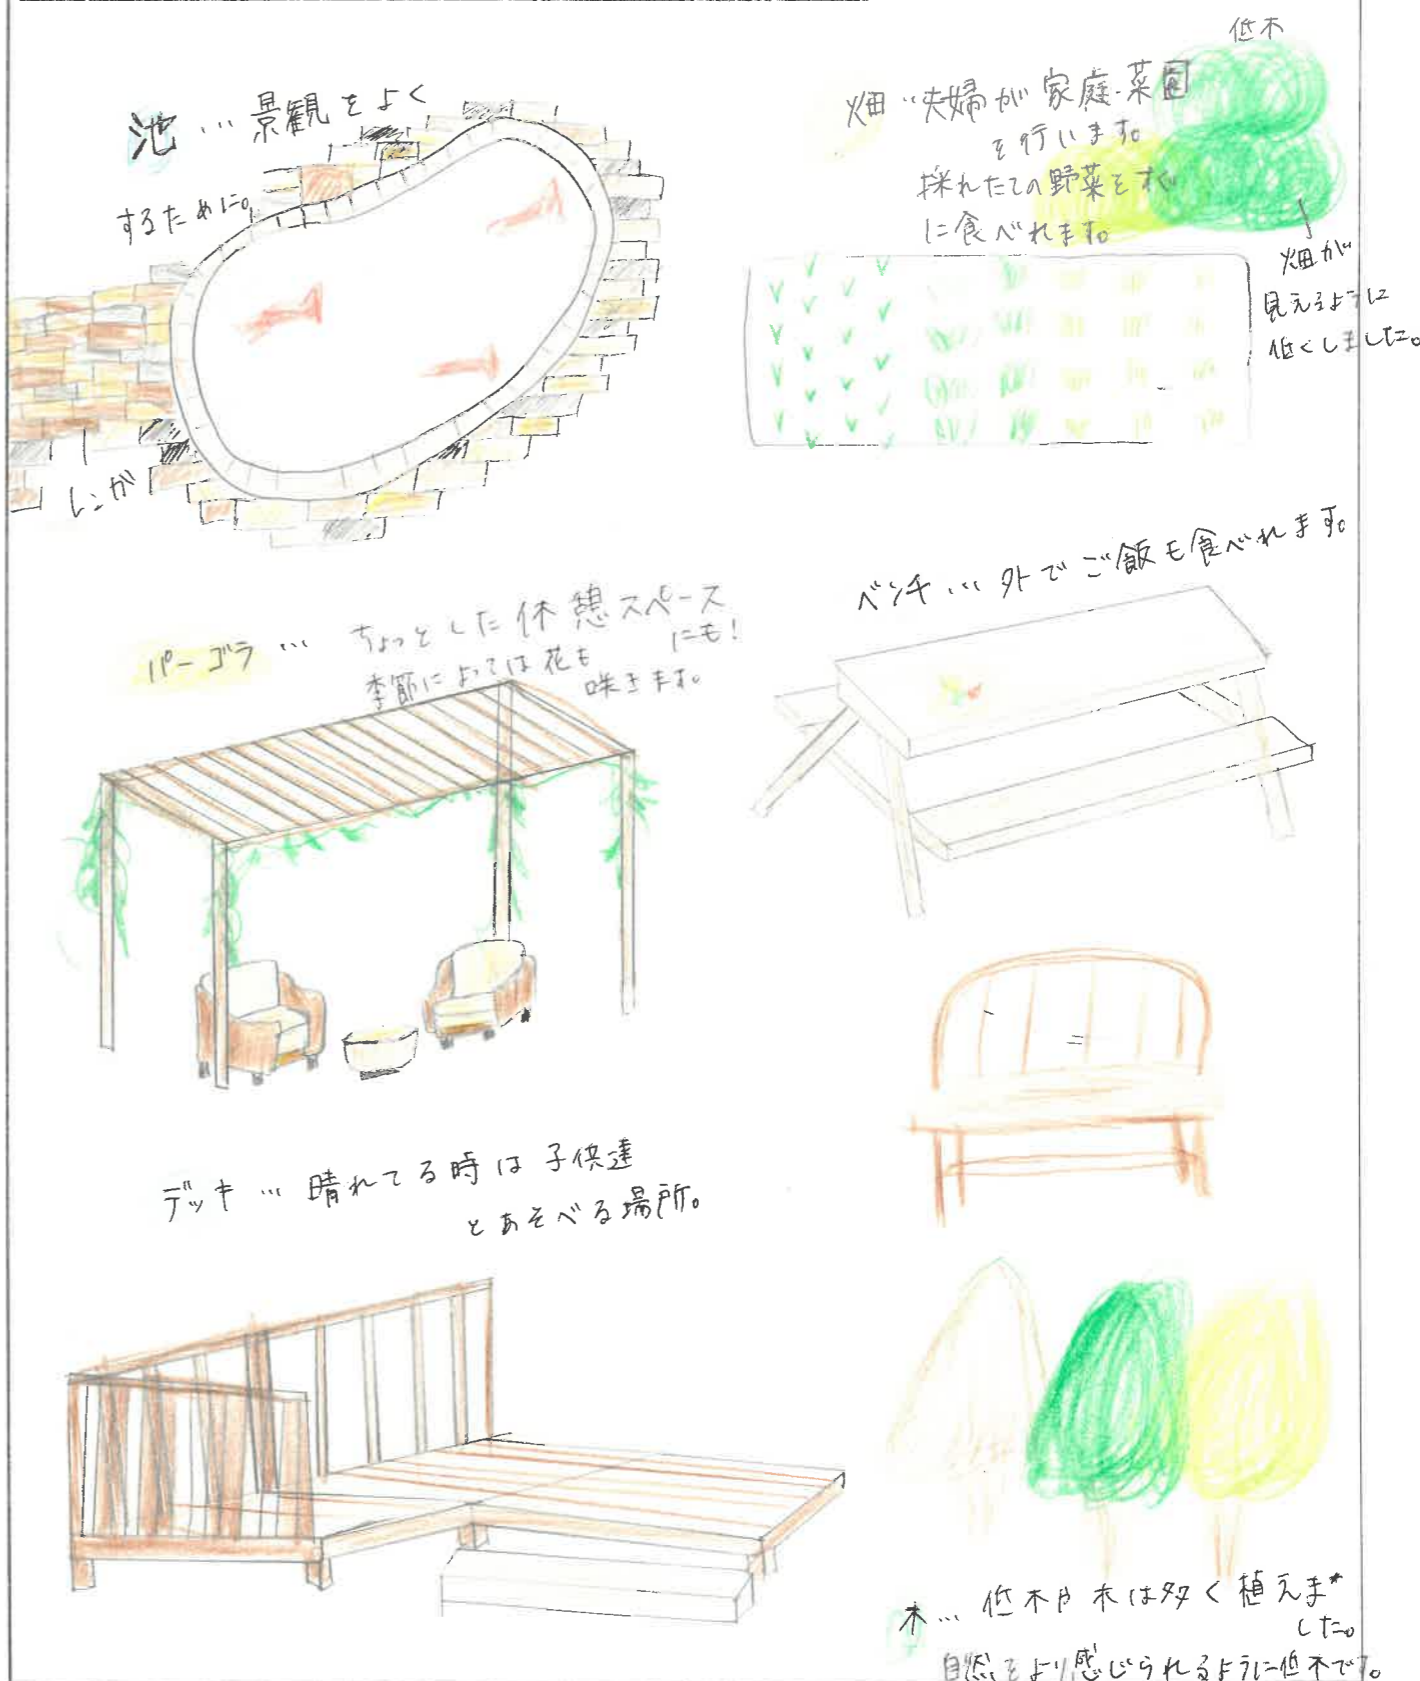 池…景観をよく
するために。
レンガ
低木
畑…夫婦が家庭菜園
を行います。
採れたての野菜をすぐ
に食べれます。
畑が
見えるように
低くしました。
パーゴラ… ちょっとした休憩スペース
にも!
季節によっては花も
咲きます。
ベンチ…外でご飯も食べれます。
デッキ…晴れてる時は子供達
とあそべる場所。
木…低木や木は多く植えま
した。
自然をより感じられるように低木です。